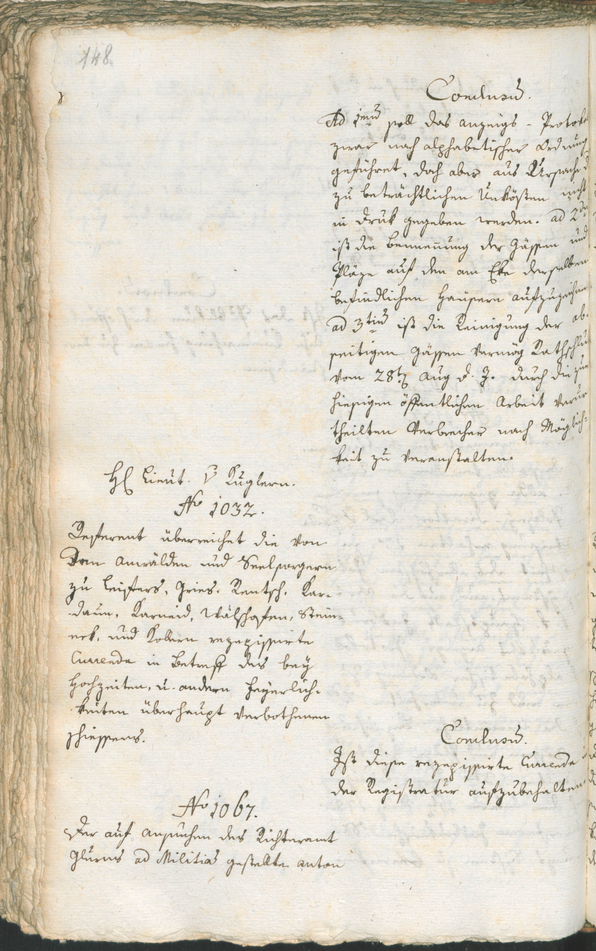 148.
Conclusum.
Ad 1mum soll das anzeigs-Protokoll
zwar nach alphabetischer Ordnung
geführet, doch aber aus Ursache
zu beträchtlichen Unkösten nicht
in Druk gegeben werden. ad 2dum
ist die Benennung der Gässen und
Pläze auf den am Eke derselben
befindlichen Häusern aufzuzeichnen
ad 3tium ist die Reinigung der ab-
seitigen Gässen vermög Rathschluß
vom 28ten Aug d. J. durch die zur
hiesigen öffentlichen Arbeit verur-
theilten Verbrecher nach Möglich-
keit zu veranstalten.
H. Lieut. v Kuglern.
No 1032.
Referent überreichet die von
den Anwälden und Seelsorgern
zu Leifers, Gries, Rentsch, Kar-
daun, Karneid, Wälshofen, Stein-
eck, und Kobern rezepissirte
Currenda in Betreff des bey
Hochzeiten, u. andern Feyerlich-
keiten überhaupt verbothenen
schiessens.
Conclusum.
Ist diese rezepissirte Currenda
der Registratur aufzubehalten.
No 1067.
Der auf Ansuchen des Richteramt
Glurns ad Militiam gestellte Anton